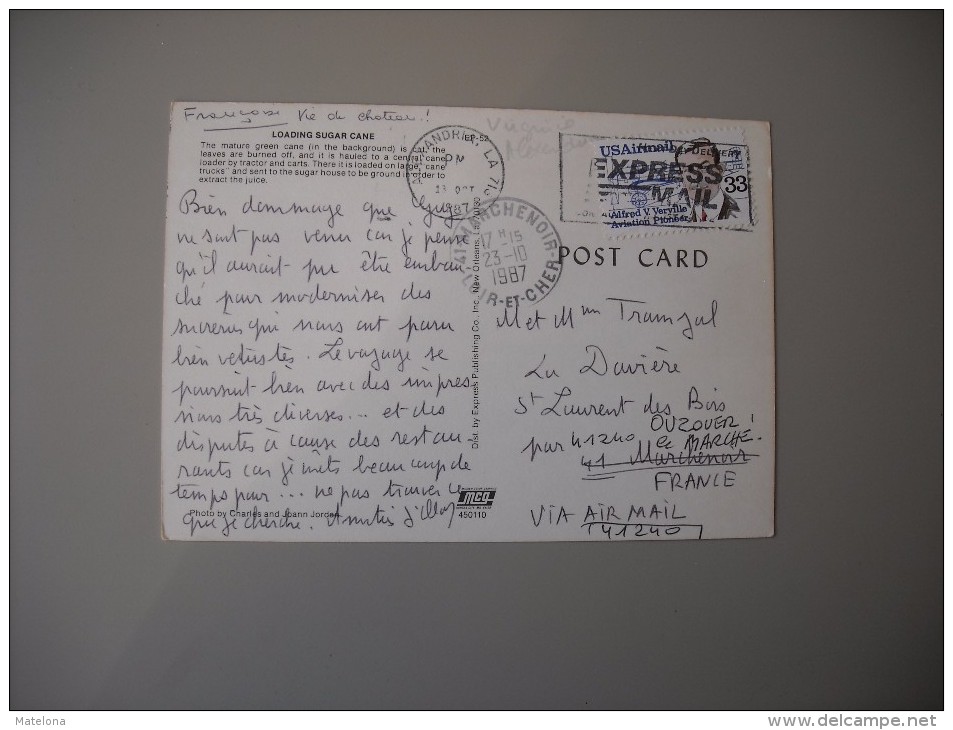 Françoise Vie de chateau!
LOADING SUGAR CANE
The mature green cane (in the background) is cut, the
leaves are burned off, and it is hauled to a central cane
loader by tractor and carts. There it is loaded on large "cane
trucks" and sent to the sugar house to be ground in order to
extract the juice.
EP-52
ALEXANDRIA, LA 713
PM
13 OCT
1987
41 MARCHENOIR
17 H 15
23-10
1987
LOIR-ET-CHER
USAirmail
EXPRESS
MAIL
33
Alfred V. Verville
Aviation Pioneer
POST CARD
Bien dommage que
ne soit pas venu car je pense
qu'il aurait pu être embau-
ché pour moderniser des
sucreries qui nous ont paru
bien vetustes. Le voyage se
poursuit bien avec des impres
sions très diverses... et des
disputes à cause des restau-
rants car je mets beaucoup de
temps pour... ne pas trouver ce
que je cherche. Amitiés
Dist. by Express Publishing Co., Inc., New Orleans, La.
M et Mme
La Davière
St Laurent des Bois
par 41240 OUZOUER
le MARCHÉ!
41 Marchenoir
FRANCE
VIA AIR MAIL
41240
Photo by Charles and Joann Jordan
mcg
450110
Matelona
www.delcampe.net